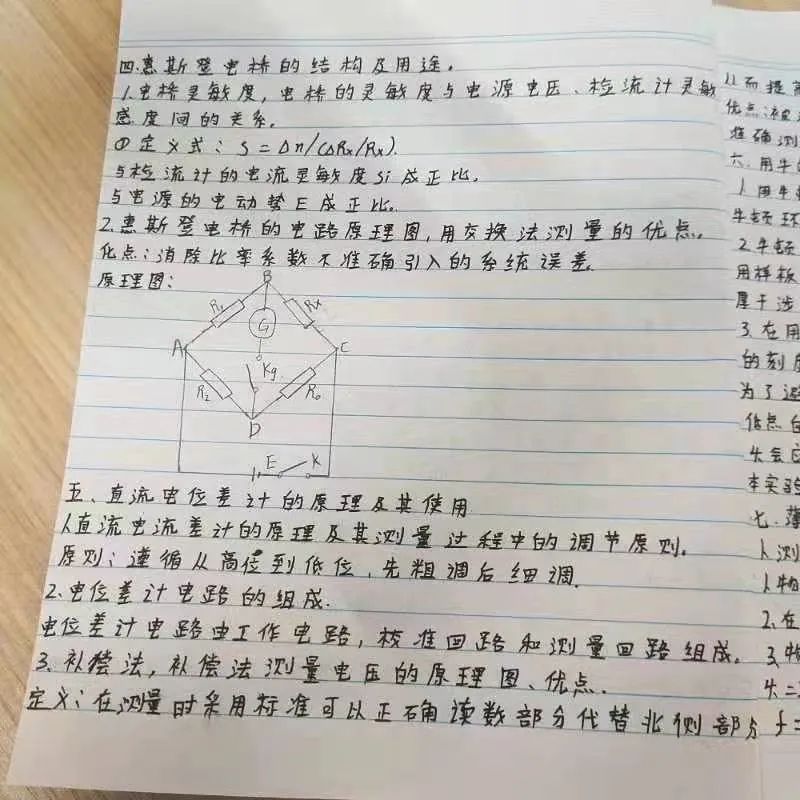 四.惠斯登电桥的结构及用途。
1.电桥灵敏度,电桥的灵敏度与电源电压、检流计灵敏
感度间的关系。
①定义式:S=Δn/(ΔRx/Rx).
与检流计的电流灵敏度Si成正比。
与电源的电动势E成正比。
2.惠斯登电桥的电路原理图,用交换法测量的优点。
优点:消除比率系数不准确引入的系统误差。
原理图:
B
R1
Rx
G
A
C
Kg
R2
R0
D
E
K
五、直流电位差计的原理及其使用
1.直流电流差计的原理及其测量过程中的调节原则。
原则:遵循从高位到低位,先粗调后细调.
2.电位差计电路的组成.
电位差计电路由工作电路,校准回路和测量回路组成。
3.补偿法,补偿法测量电压的原理图、优点.
定义:在测量时采用标准可以正确读数部分代替北侧部分
11.而提
优点:被
准确测
六.用牛
1.用牛
牛顿环
2.牛顿
用样板
厚干涉
3.在用
的刻度
为了避
优点
本实验
七.薄
1.测
1.物
2.在
3.物
f=